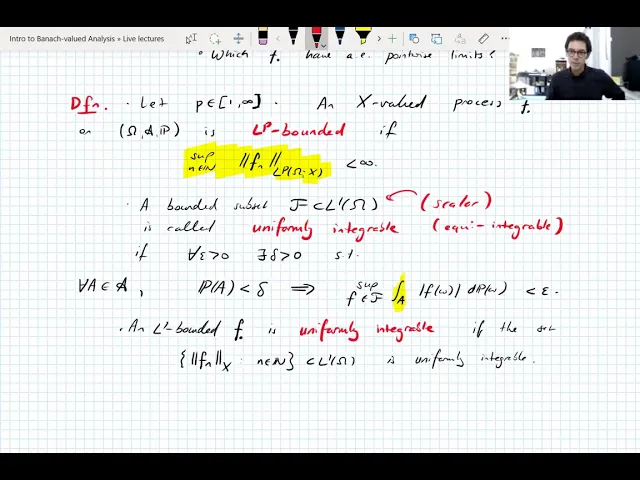 Intro to Banach-valued Analysis » Live lectures
• Which f. have a.e. pointwise limits?
Dfn. • Let p∈[1,∞]. An X-valued process f.
on (Ω,𝒜,ℙ) is Lᵖ-bounded if
sup n∈ℕ ‖fₙ‖ Lᵖ(Ω;X) <∞.
• A bounded subset ℱ⊂L¹(Ω) (scalar)
is called uniformly integrable (equi-integrable)
if ∀ε>0 ∃δ>0 s.t.
∀A∈𝒜, ℙ(A)<δ ⟹ sup f∈ℱ ∫_A |f(ω)| dℙ(ω) <ε.
• An L¹-bounded f. is uniformly integrable if the set
{‖fₙ‖_X : n∈ℕ} ⊂L¹(Ω) is uniformly integrable.